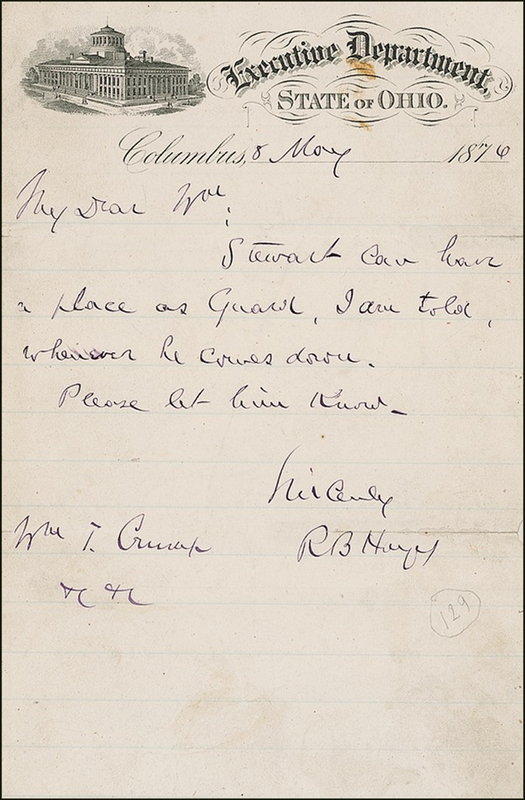 Executive Department,
STATE OF OHIO.
Columbus, 8 May 1876
My Dear Wm:
Stewart can have
a place as Guard, I am told,
whenever he comes down.
Please let him know.
Sincerely
R B Hayes
Wm T. Crump
129